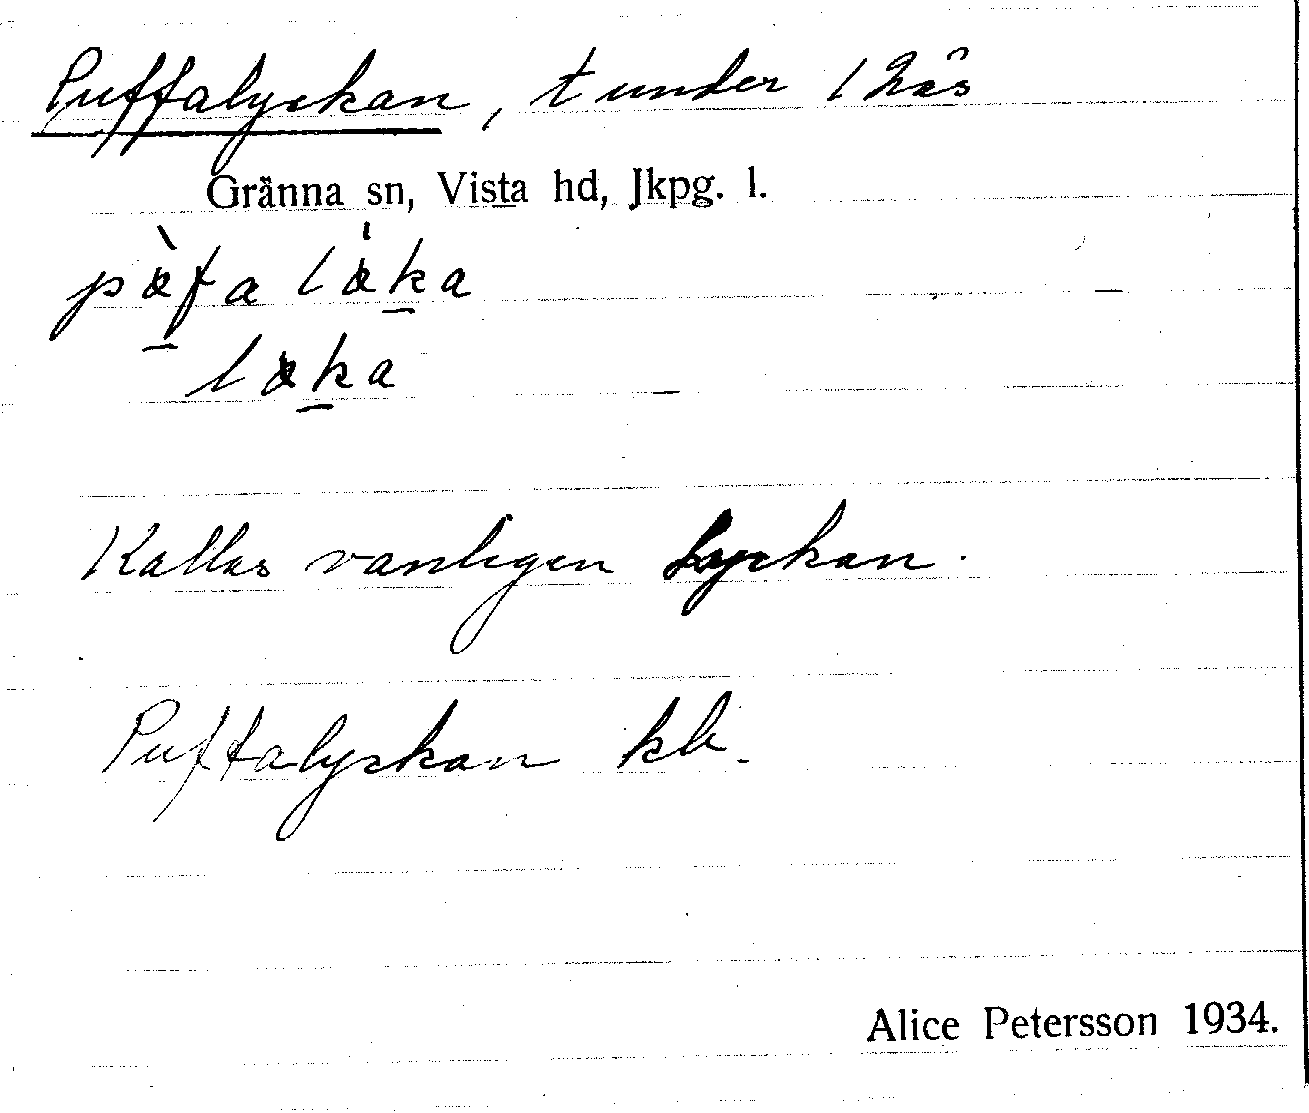 Puffalyckan, t under 1 Näs
Gränna sn, Vista hd, Jkpg. l.
pàfa làka
laka
Kallas vanligen Lyckan.
Puffalyckan kb.
Alice Petersson 1934.